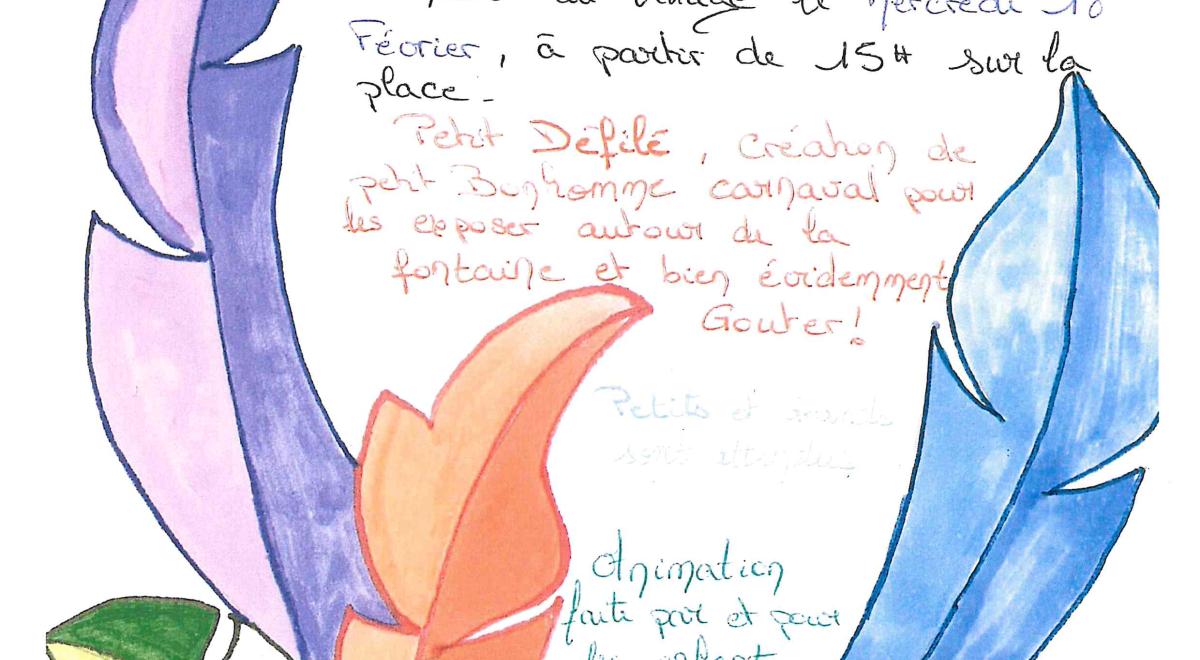 au village le Mercredi
Février, à partir de 15H sur la
place.
Petit Défilé, Création de
petit Bonhomme carnaval pour
les exposer autour de la
fontaine et bien évidemment
Gouter!
Petits et grands
sont attendus
Animation
faite par et pour